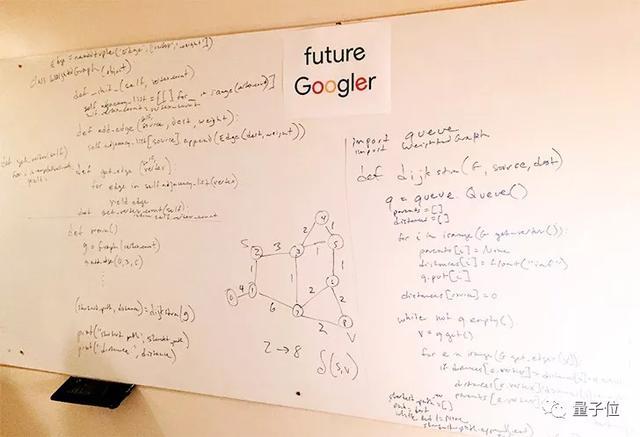 future
Googler
Edge = namedtuple('edge', ['vertex', 'weight'])
class WeightedGraph(object)
def __init__(self, vertex_count)
self.adjacency_list = [[] for _ in range(vertex_count)]
def add_edge(self, source, dest, weight):
self.adjacency_list[source].append(Edge(dest, weight))
def get_edge(self, vertex)
for edge in self.adjacency_list(vertex)
yield edge
def get_vertex(self)
def get_vertex_count(self):
def main()
g = Graph(
g.add_edge(0,3,
(shortest_path, distance) = dijkstra(g)
print("shortest path", shortest_path)
print("distance", distance)
S
2
3
3
2
4
1
1
5
1
1
1
0
4
1
6
7
2
6
2
2
8
V
2 → 8
δ(s,v)
import queue
import WeightedGraph
def dijkstra(G, source, dest)
q = queue.Queue()
parents = []
distances = []
for i in range(G.get_vertex()):
parents[i] = None
distances[i] = float("inf")
q.put[i]
distances[source] = 0
while not q.empty()
v = q.get()
for e in range(G.get_edge(v)):
if distances[e.vertex] > distances[
distances[e.vertex]
parents[e.vertex]
shortest_path = []
量子位